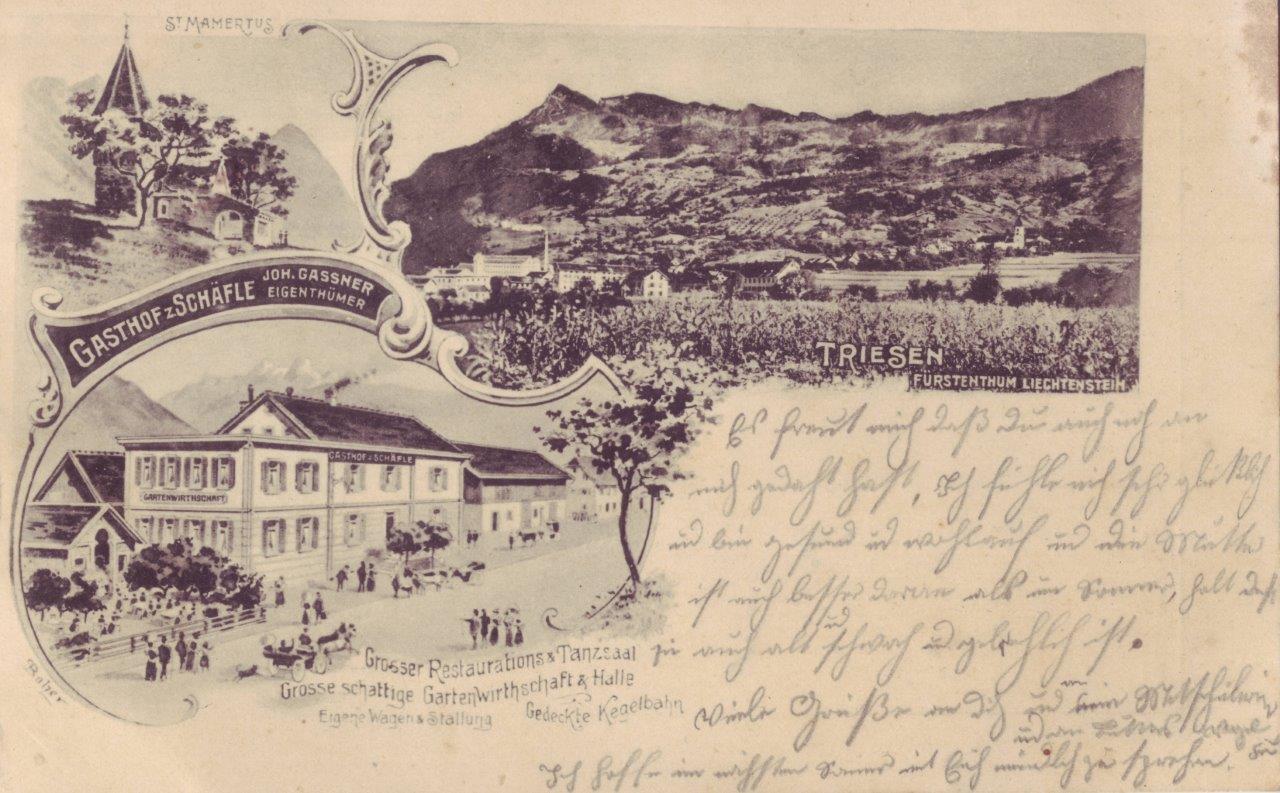 ST MAMERTUS
GASTHOF Z. SCHÄFLE
JOH. GASSNER
EIGENTHÜMER
TRIESEN
FÜRSTENTHUM LIECHTENSTEIN.
GASTHOF Z. SCHÄFLE
GARTENWIRTHSCHAFT
Grosser Restaurations & Tanzsaal
Grosse schattige Gartenwirthschaft & Halle
Eigene Wagen & Stallung
Gedeckte Kegelbahn
Es freut mich daß du auch noch an
mich gedacht hast, Ich fühle mich sehr glücklich
und bin gesund und wohlauf und die Mutter
ist auch besser daran als im Sommer, halt daß
sie auch alt schwach und ist.
Viele Grüße an dich und
und an
Ich hoffe im nächsten Sommer mit Euch mündlich zu sprechen.